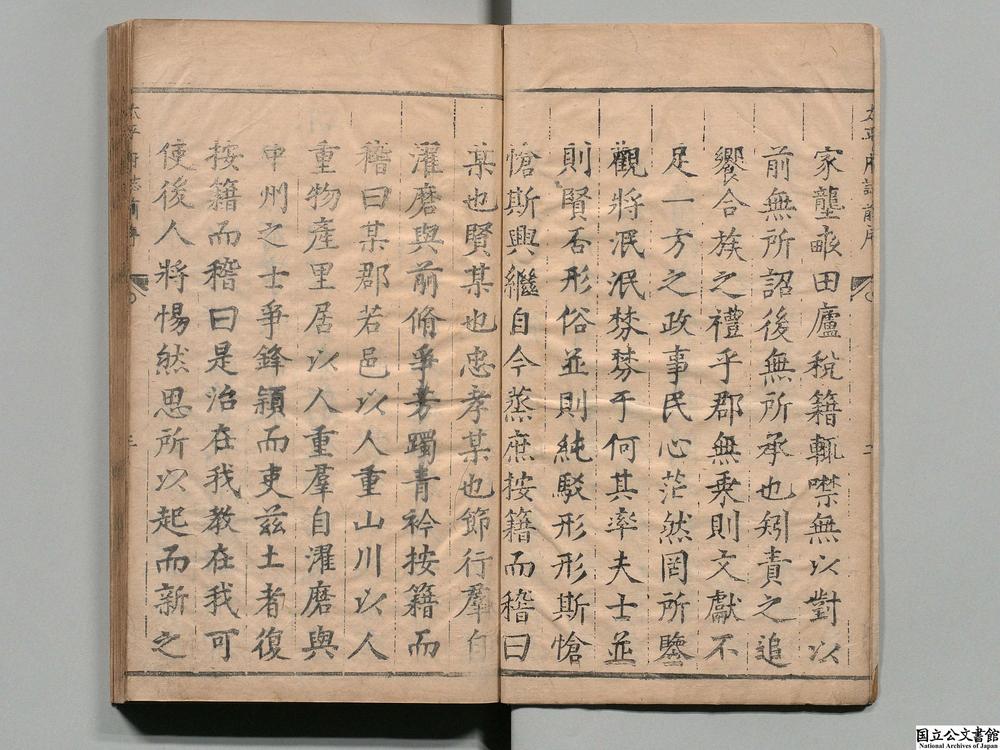 太平府志前序
二
家壟畞田廬稅籍輒噤無以對以
前無所詔後無所承也矧責之追
饗合族之禮乎郡無乗則文獻不
足一方之政事民心茫然罔所鑒
觀將泯泯棼棼于何其率夫士並
則賢否形俗並則純駁形形斯愴
愴斯興繼自今蒸庶按籍而稽曰
某也賢某也忠孝某也節行羣自
濯磨與前脩爭芳躅青衿按籍而
稽曰某郡若邑以人重山川以人
重物產里居以人重羣自濯磨與
中州之士爭鋒穎而吏茲土者復
按籍而稽曰是治在我教在我可
使後人將惕然思所以起而新之
太平府志前序
三
国立公文書館
National Archives of Japan